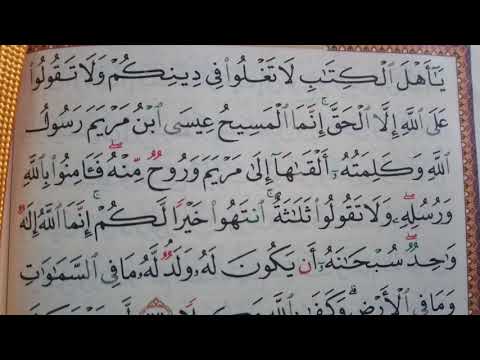 يَٰٓأَهۡلَ ٱلۡكِتَٰبِ لَا تَغۡلُواْ فِي دِينِكُمۡ وَلَا تَقُولُواْ
عَلَى ٱللَّهِ إِلَّا ٱلۡحَقَّۚ إِنَّمَا ٱلۡمَسِيحُ عِيسَى ٱبۡنُ مَرۡيَمَ رَسُولُ
ٱللَّهِ وَكَلِمَتُهُۥٓ أَلۡقَىٰهَآ إِلَىٰ مَرۡيَمَ وَرُوحٞ مِّنۡهُۖ فَـَٔامِنُواْ بِٱللَّهِ
وَرُسُلِهِۦۖ وَلَا تَقُولُواْ ثَلَٰثَةٌۚ ٱنتَهُواْ خَيۡرٗا لَّكُمۡۚ إِنَّمَا ٱللَّهُ إِلَٰهٞ
وَٰحِدٞۖ سُبۡحَٰنَهُۥٓ أَن يَكُونَ لَهُۥ وَلَدٞۘ لَّهُۥ مَا فِي ٱلسَّمَٰوَٰتِ
وَمَا فِي ٱلۡأَرۡضِۗ وَكَفَىٰ بِٱللَّهِ